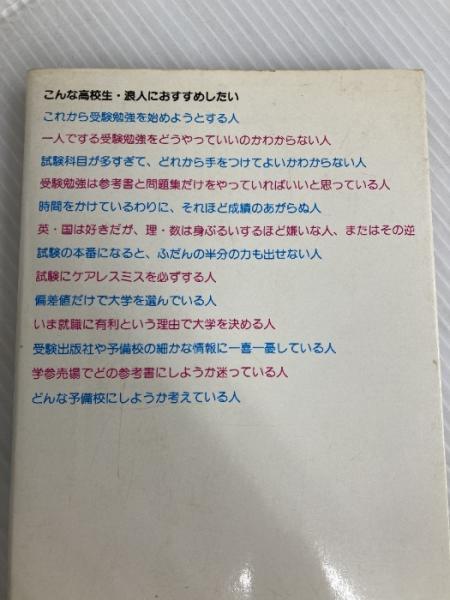 こんな高校生・浪人におすすめしたい
これから受験勉強を始めようとする人
一人でする受験勉強をどうやっていいのかわからない人
試験科目が多すぎて、どれから手をつけてよいかわからない人
受験勉強は参考書と問題集だけをやっていればいいと思っている人
時間をかけているわりに、それほど成績のあがらぬ人
英・国は好きだが、理・数は身ぶるいするほど嫌いな人、またはその逆
試験の本番になると、ふだんの半分の力も出せない人
試験にケアレスミスを必ずする人
偏差値だけで大学を選んでいる人
いま就職に有利という理由で大学を決める人
受験出版社や予備校の細かな情報に一喜一憂している人
学参売場でどの参考書にしようか迷っている人
どんな予備校にしようか考えている人